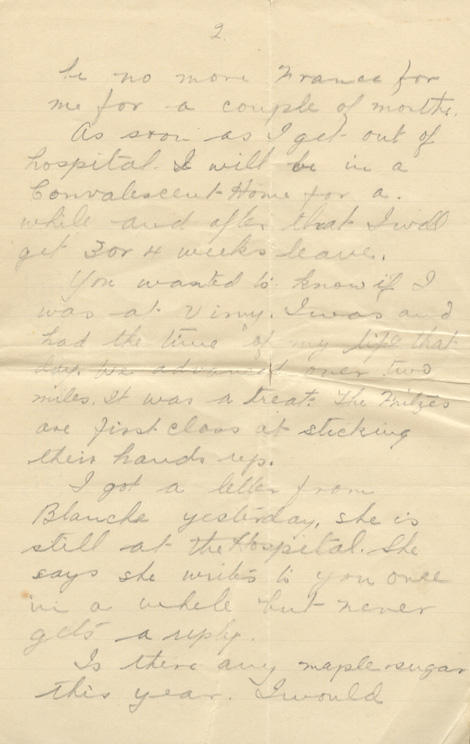 2.
be no more France for
me for a couple of months.
As soon as I get out of
hospital I will be in a
Convalescent Home for a
while and after that I will
get 3 or 4 weeks leave.
You wanted to know if I
was at Vimy. I was and
had the time of my life that
day. We advanced over two
miles. It was a treat. The Fritzes
are first class at sticking
their hands up.
I got a letter from
Blanche yesterday, she is
still at the Hospital. She
says she writes to you once
in a while but never
gets a reply.
Is there any maple sugar
this year. I would